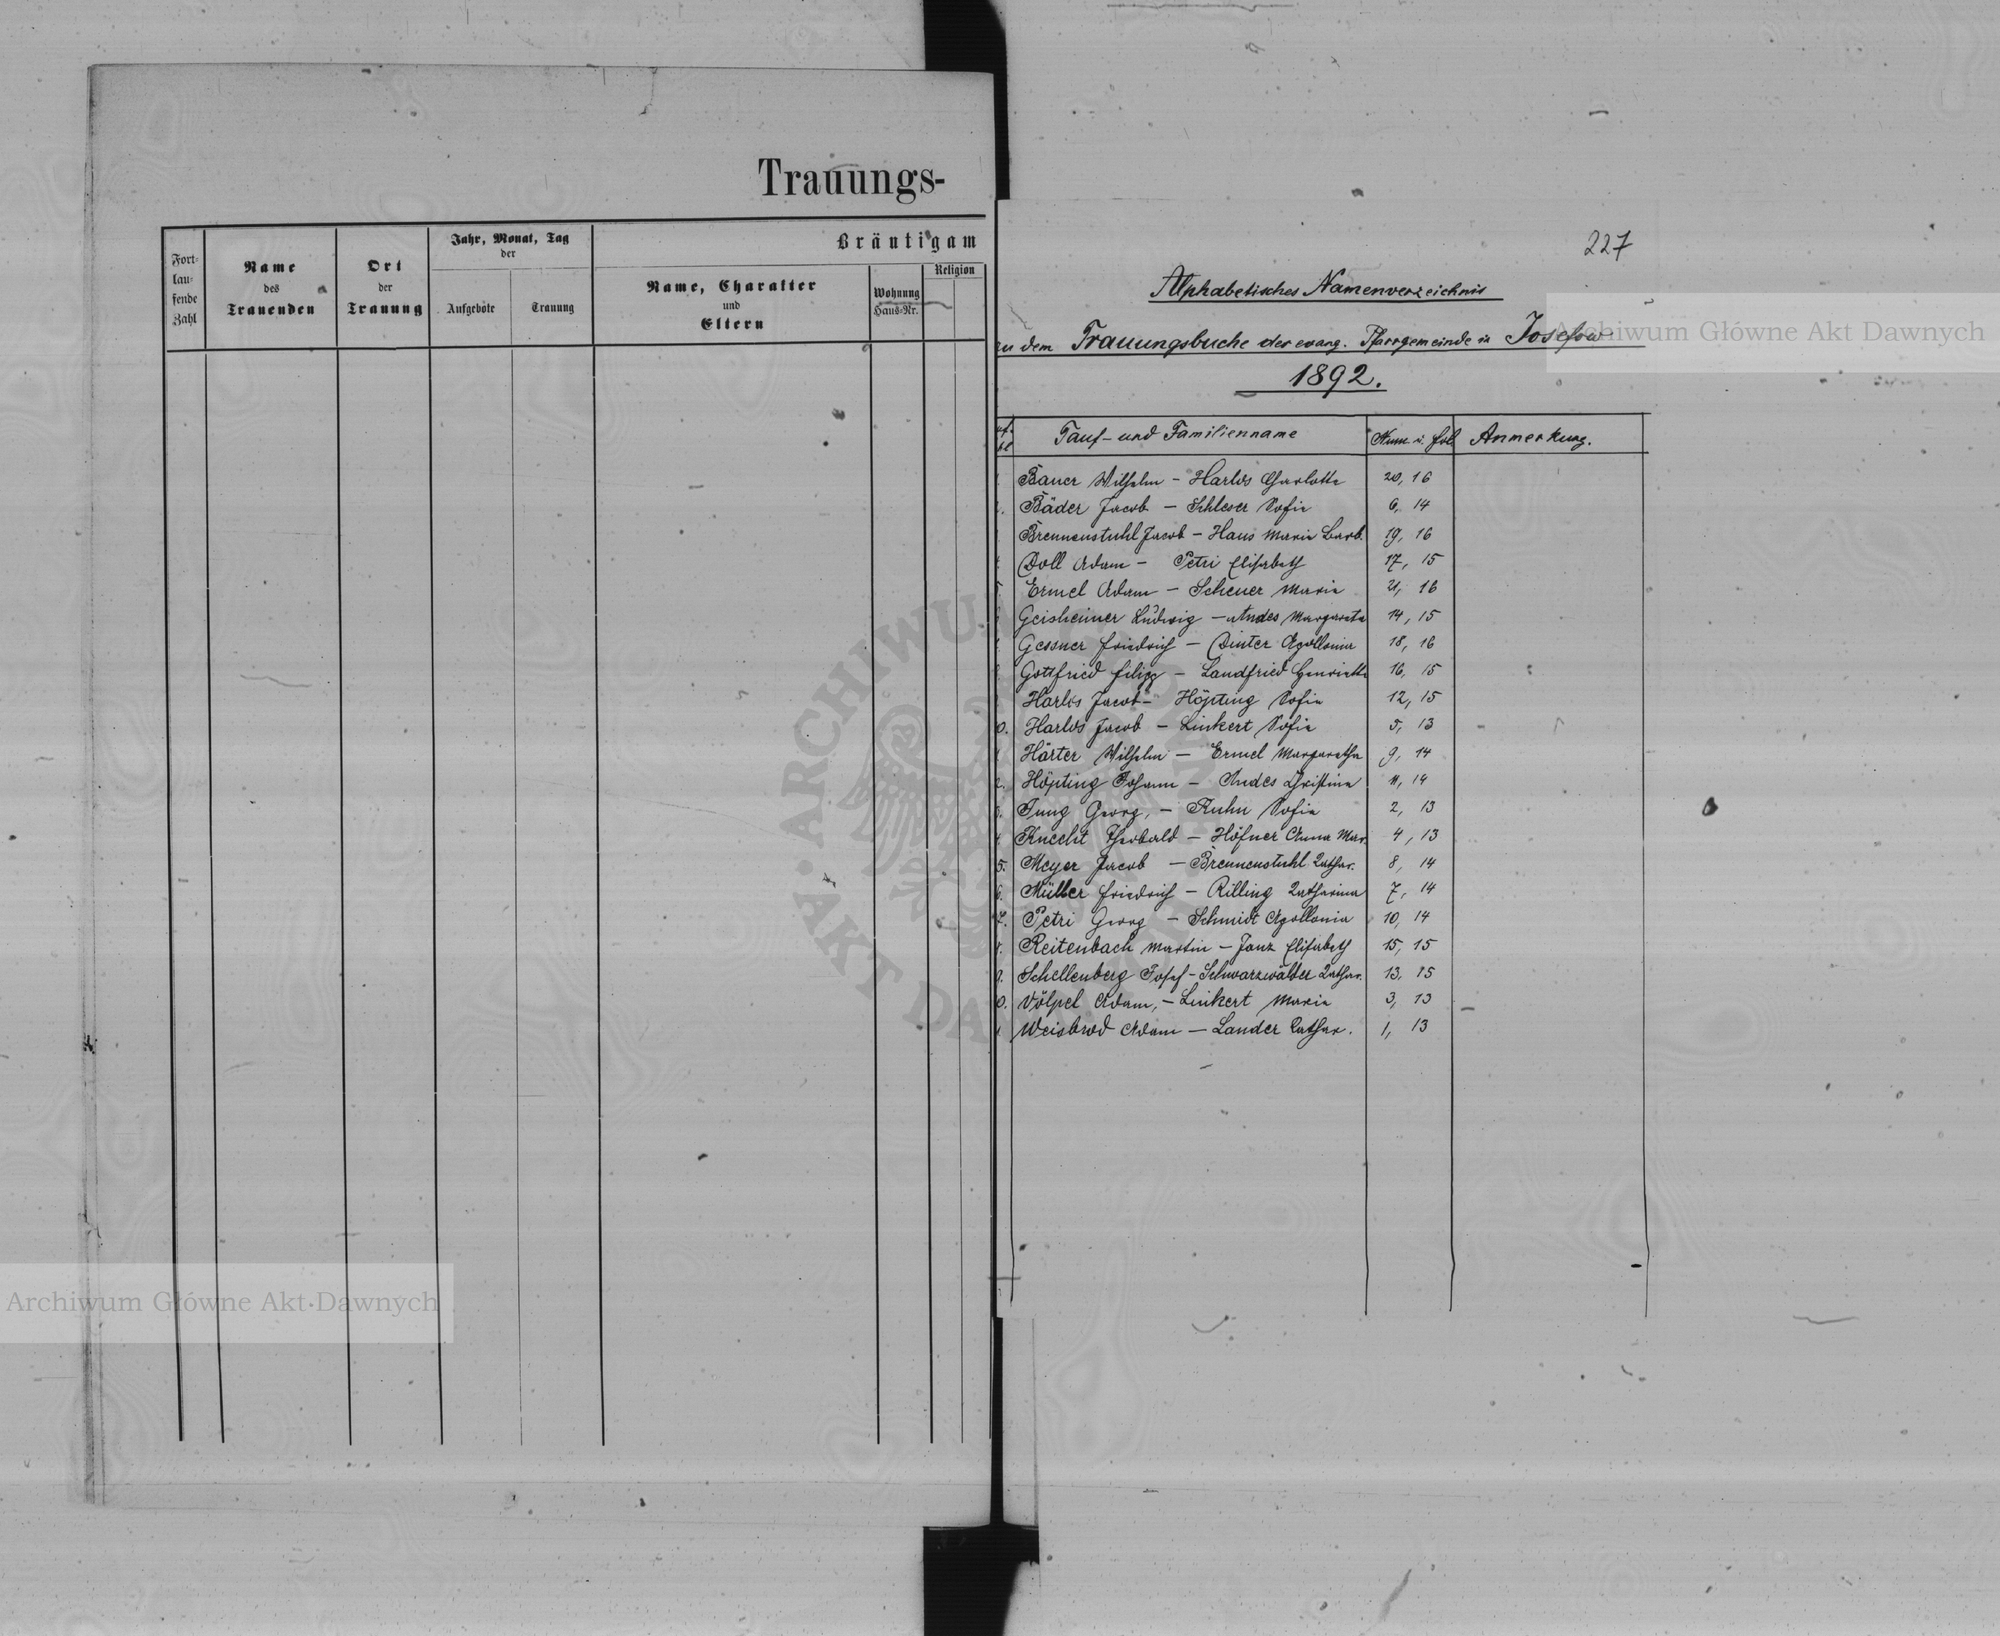 Trauungs-
Fort-
lau-
fende
Zahl
Name
des
Trauenden
Ort
der
Trauung
Jahr, Monat, Tag
der
Aufgebote
Trauung
Bräutigam
Name, Charakter
und
Eltern
Wohnung
Haus-Nr.
Religion
227
Alphabetisches Namenverzeichnis
zu dem Trauungsbuche der evang. Pfarrgemeinde in Josefow
1892.
Tauf- und Familienname Num. u. fol. Anmerkung.
Bauer Wilhelm - Harlos Charlotte 20, 16
Bäder Jacob - Schleser Sofie 6, 14
Brennenstuhl Jacob - Haus Marie Barb. 19, 16
Doll Adam - Petri Elisabeth 17, 15
Ermel Adam - Scheuer Marie 21, 16
Geisheimer Ludwig - Andes Margareta 14, 15
Gessner Friedrich - Dinter Apollonia 18, 16
Gottfried Filipp - Landfried Henriette 16, 15
Harlos Jacob - Höpting Sofie 12, 15
0. Harlos Jacob - Linkert Sofie 5, 13
Härter Wilhelm - Ermel Margaretha 9, 14
2. Höpting Johann - Andes Christine 11, 14
3. Jung Georg, - Kuhn Sofie 2, 13
4. Knecht Theobald - Höfner Anna Mar. 4, 13
5. Meyer Jacob - Brennenstuhl Kathar. 8, 14
6. Müller Friedrich - Rilling Katharina 7, 14
7. Petri Georg - Schmidt Apollonia 10, 14
8. Reitenbach Martin - Janz Elisabeth 15, 15
9. Schellenberg Josef - Schwarzwälder Kathar. 13, 15
0. Völpel Adam, - Linkert Marie 3, 13
1. Weisbrod Adam - Lander Kathar. 1, 13
Archiwum Główne Akt Dawnych
Archiwum Główne Akt Dawnych